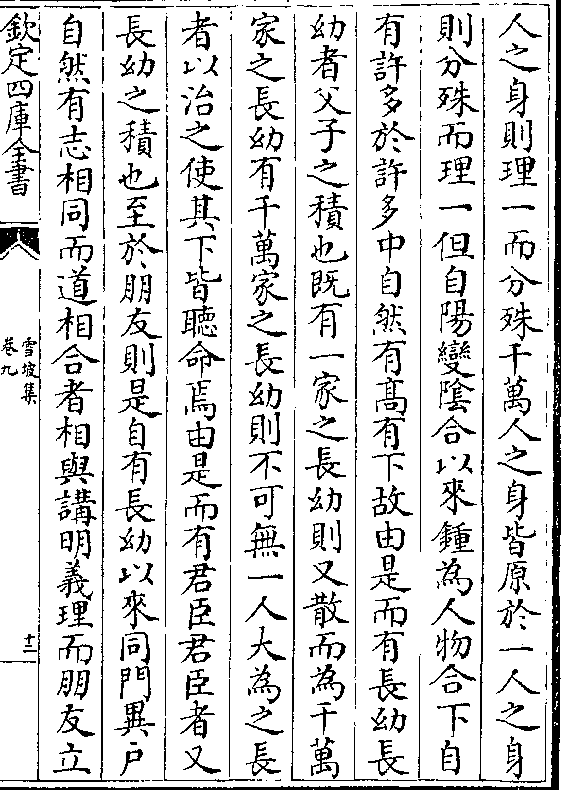 人之身則理一而分殊千萬人之身皆原於一人之身
則分殊而理一但自陽變隂合以來鍾為人物合下自
有許多於許多中自然有髙有下故由是而有長幼長
幼者父子之積也既有一家之長幼則又散而為千萬
家之長幼有千萬家之長幼則不可無一人大為之長
者以治之使其下皆聽命焉由是而有君臣君臣者又
長幼之積也至於朋友則是自有長幼以來同門異户
自然有志相同而道相合者相與講明義理而朋友立
欽定四庫全書
雪坡集
卷九
十二